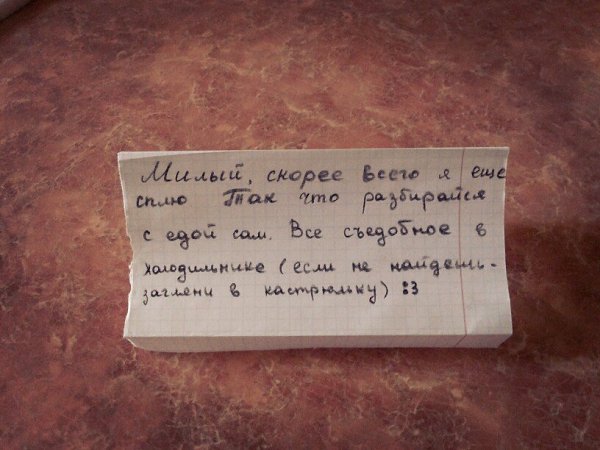 Милый, скорее всего я еще
сплю Так что разбирайся
с едой сам. Все съедобное в
холодильнике (если не найдешь-
загляни в кастрюльку) :3